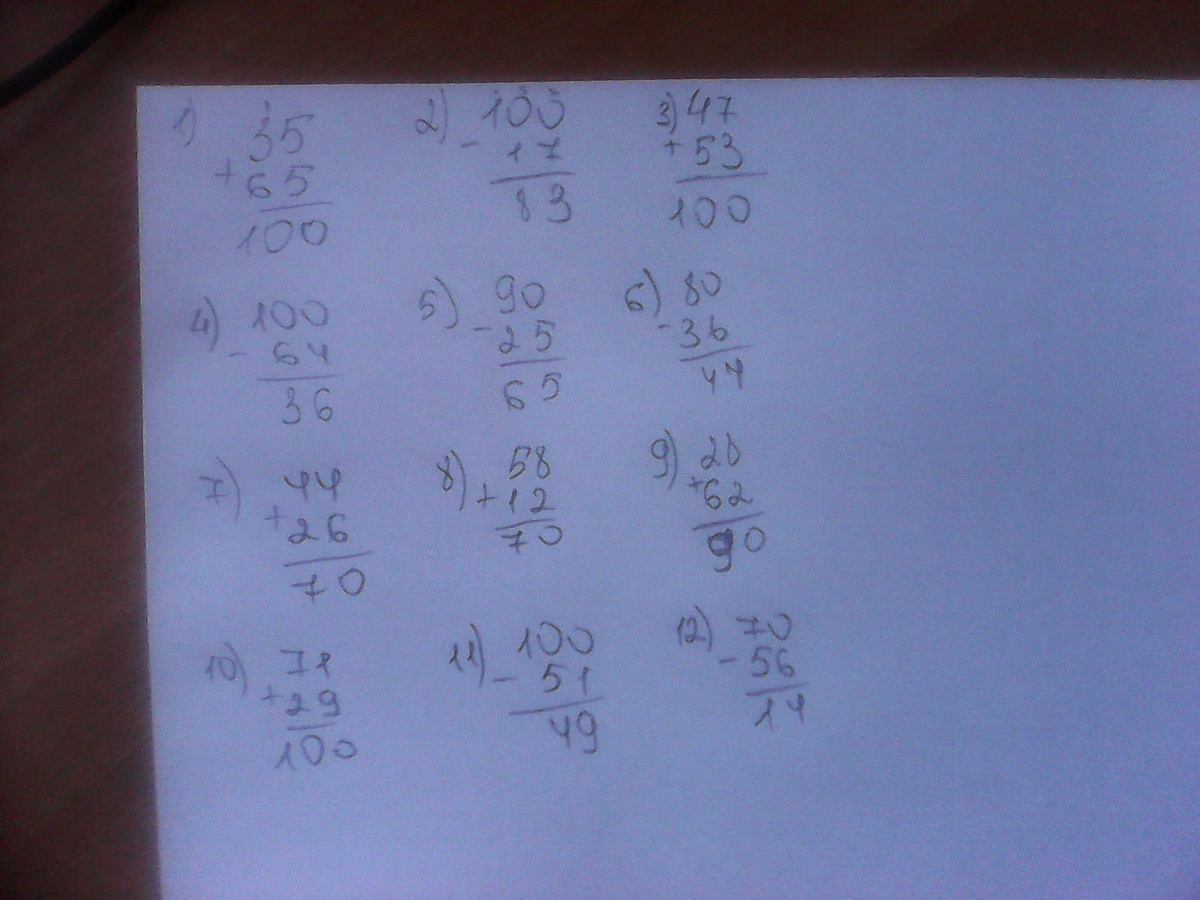 1) 35
+ 65
100
2) 100
- 17
83
3) 47
+ 53
100
4) 100
- 64
36
5) 90
- 25
65
6) 80
- 36
44
7) 44
+ 26
70
8) 58
+ 12
70
9) 28
+ 62
90
10) 71
+ 29
100
11) 100
- 51
49
12) 70
- 56
14